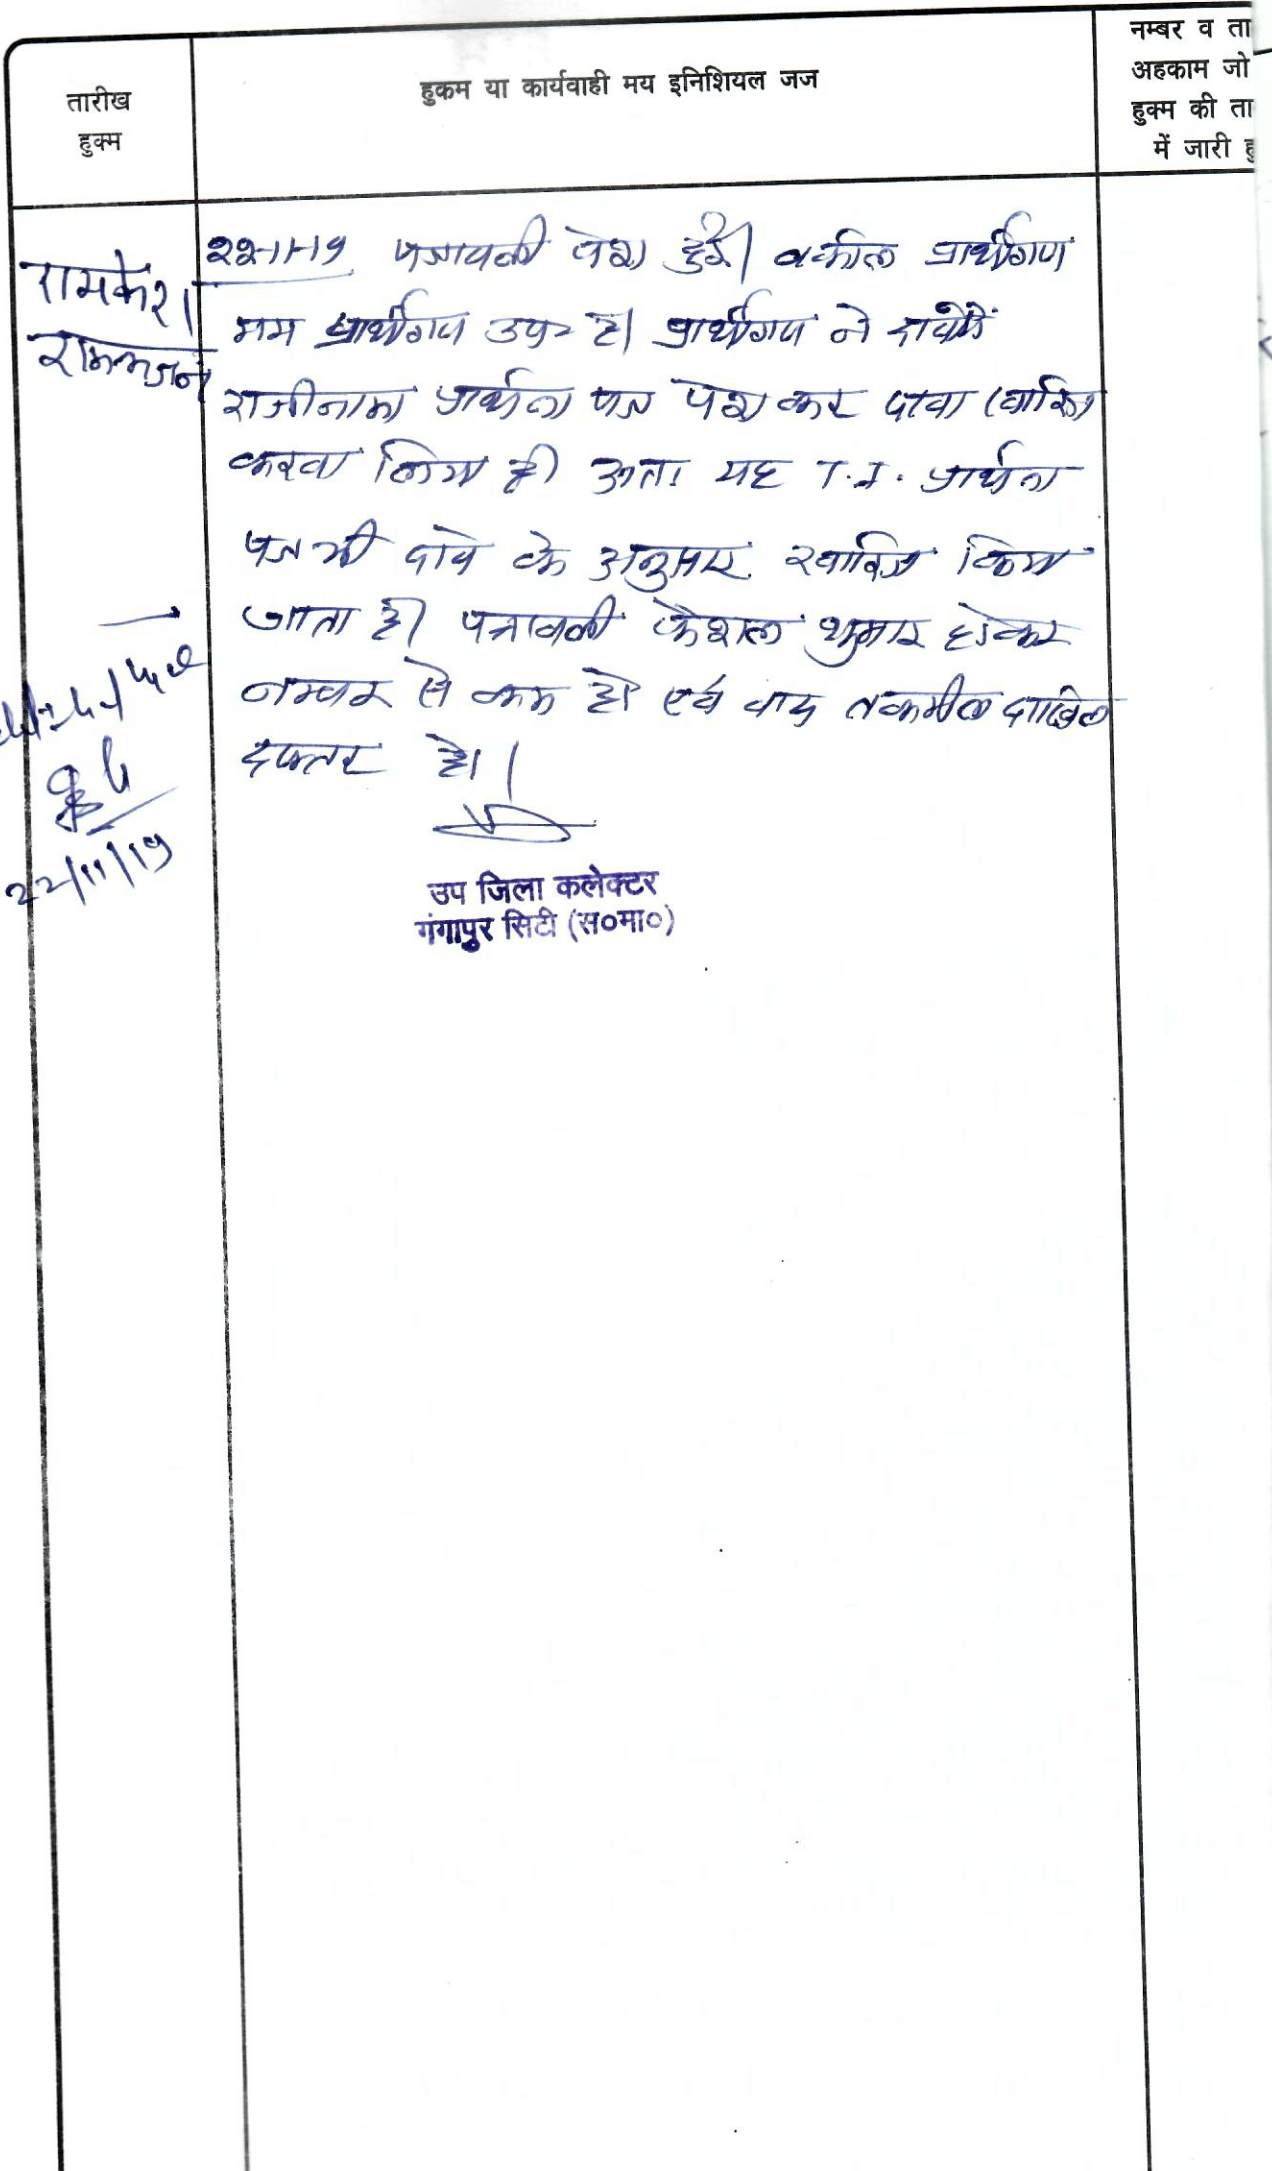 तारीख
हुक्म
हुकम या कार्यवाही मय इनिशियल जज
नम्बर व ता
अहकाम जो
हुक्म की ता
में जारी हु
रामकेश
रामभजन
22-11-19 पत्रावली पेश हुई। वकील प्रार्थीगण
मम प्रार्थीगण उप० है। प्रार्थीगण ने दावेमें
राजीनामा प्रार्थना पत्र पेश कर दावा खारिज
करवा लिया है। अतः यह T.I. प्रार्थना
पत्र भी दावे के अनुसार खारिज किया
जाता है। पत्रावली फैशल शुमार होकर
नम्बर से कम हो एवं बाद तकमील दाखिल
दफ्तर हो।
22/11/19
उप जिला कलेक्टर
गंगापुर सिटी (स०मा०)